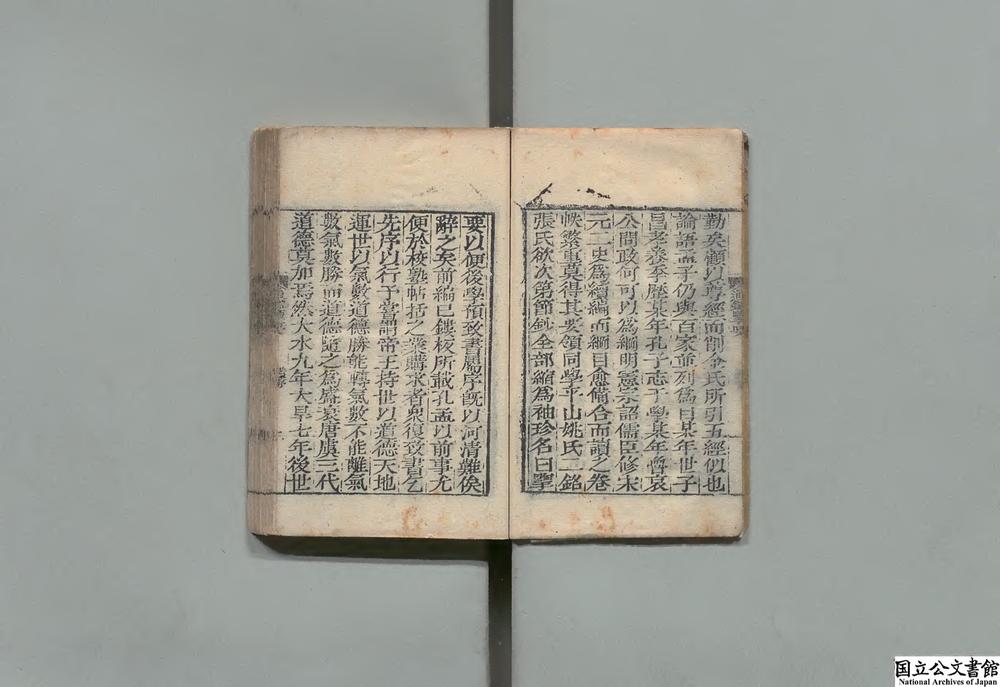 勤矣顧以尊經而削余氏所引五經似也
論語孟子仍與百家並列爲曰某年世子
昌孝養季歷某年孔子志于學某年魯哀
公問政何可以爲綱明憲宗詔儒臣修宋
元二史爲續編而綱目愈備合而讀之卷
帙繁重莫得其要領同學平山姚氏二銘
張氏欲次第節鈔全部縮爲袖珍名曰擥
要以便後學預致書屬序旣以河清難俟
辭之矣前編已鏤板所載孔孟以前事尤
便於校塾帖括之業購求者衆復致書乞
先序以行予嘗謂帝王持世以道德天地
運世以氣數道德勝能轉氣數不能離氣
數氣數勝而道德隨之爲盛衰唐虞三代
道德莫加焉然大水九年大旱七年後世
国立公文書館
National Archives of Japan